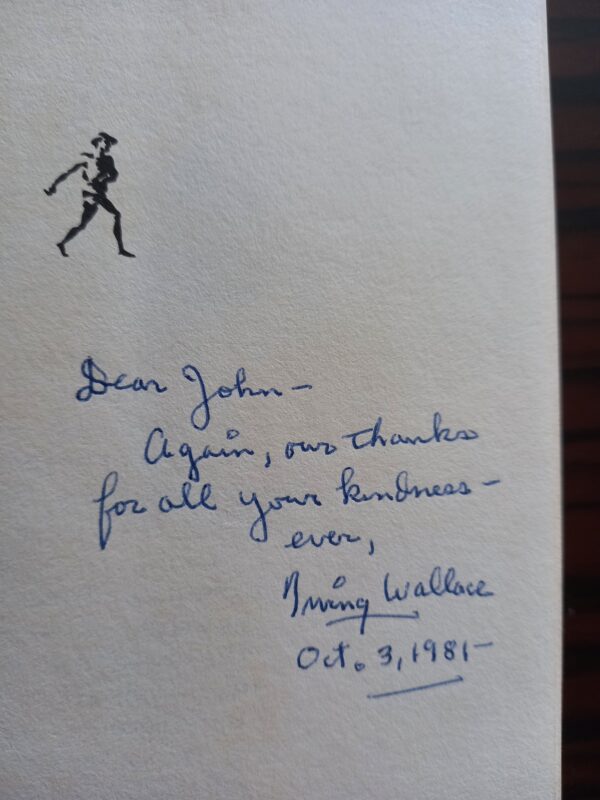 Dear John –
Again, our thanks
for all your kindness –
ever,
Irving Wallace
Oct. 3, 1981 –